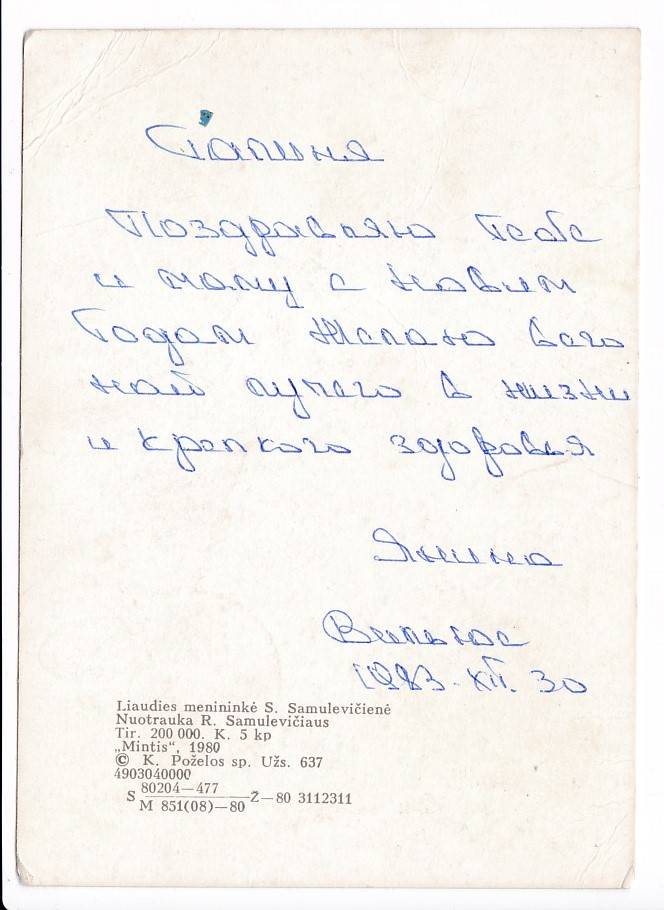 Галиня
Поздравляю тебе
и маму с Новим
Годам Желаю всего
най лучего в жизни
и крепкого здоровья
Янина
Вильнюс
1983. XII. 30
Liaudies menininkė S. Samulevičienė
Nuotrauka R. Samulevičiaus
Tir. 200 000. K. 5 kp
„Mintis“, 1980
© K. Poželos sp. Užs. 637
4903040000
S 80204—477
M 851(08)—80 Z—80 3112311